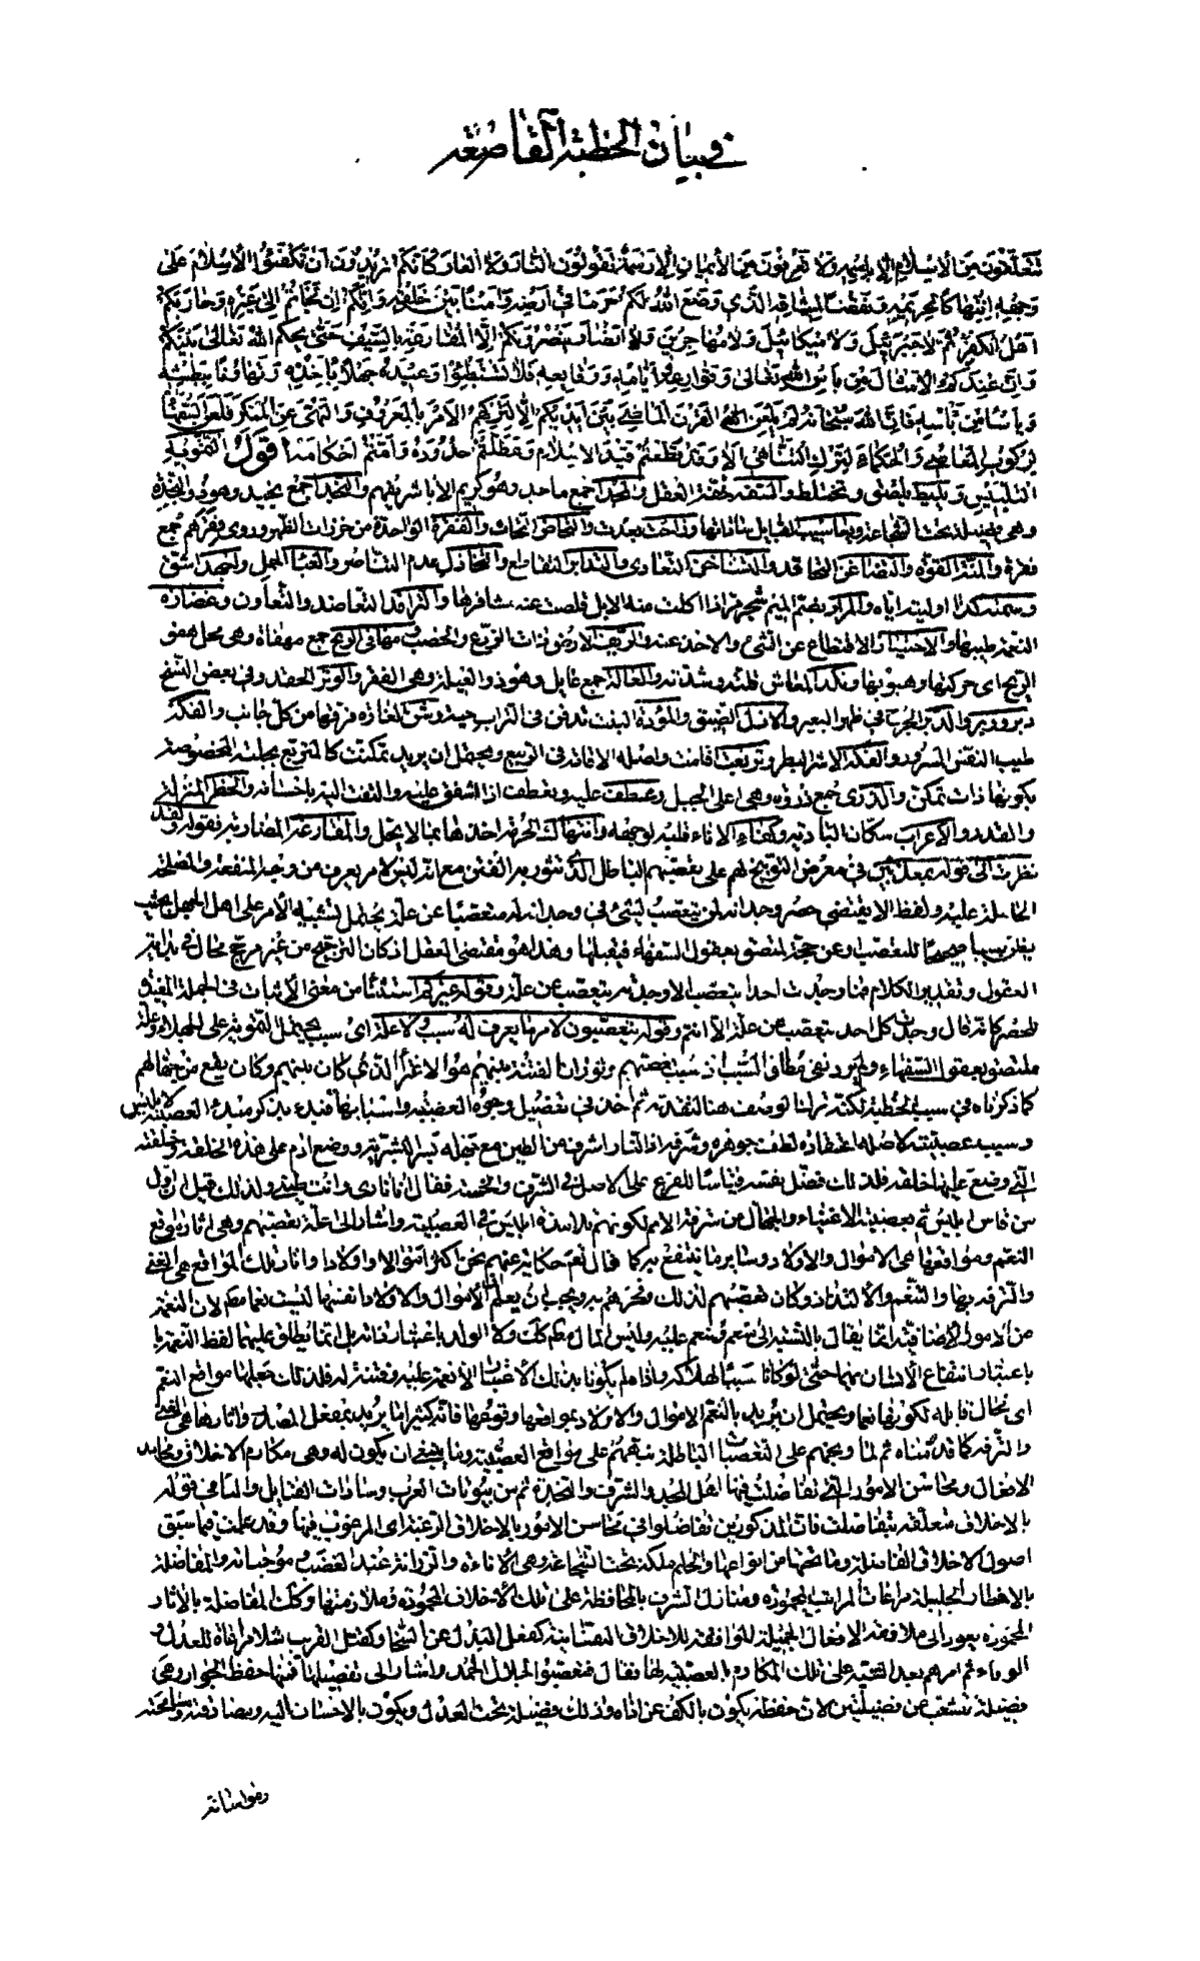 في بيان الخطبة القاصعة
تتعلقون من الاسلام الا باسمه ولا تعرفون من الايمان الا رسمه تقولون النار ولا العار كانكم تريدون ان تكفئوا الاسلام على
وجهه انتهاكا لحريمه ونقضا لميثاقه الذي وضع الله لكم حرما في ارضه وامنا بين خلقه وانكم ان لجاتم الى غيره حاربكم
اهل الكفر ثم لا جبرئيل ولا ميكائيل ولا مهاجرين ولا انصار ينصرونكم الا المقارعة بالسيف حتى يحكم الله تعالى بينكم
وان عندكم الامثال من باس الله تعالى وقوارعه وايامه ووقايعه فلا تستبطئوا وعيده جهلا باخذه وتهاونا ببطشه
وياسا من باسه فان الله سبحانه لم يلعن القرن الماضي بين ايديكم الا لتركهم الامر بالمعروف والنهي عن المنكر فلعن السفهاء
لركوب المعاصي والحكماء لترك التناهي الا وقد قطعتم قيد الاسلام وعطلتم حدوده وامتم احكامه اقول التمويه
التلبيس ويليط يلصق ويختلط والسفه خفة العقل والمجداء جمع ماجد وهو كريم الاباء شريفهم والنجداء جمع نجيد وهو ذو النجدة
وهي فضيلة تحت الشجاعة
فقرة والمنة القوة والتضاغن التحاقد والتشاحن التعادى والتدابر التقاطع والتخاذل عدم التناصر والعبا الحمل واجهد اشق
وسمته كذا اوليته اياه والمرار بضم الميم شجر مر اذا اكلت منه الابل قلصت عنه مشافرها والترافد التعاضد والتعاون وغضارة
النعمة طيبها والاحتياز الاقتطاع عن الشيء والاخذ عنه
الريح اى حركتها وهبوبها ونكد المعاش قلته وشدته والعالة جمع عايل وهو ذو العيلة وهي الفقر والوتر الحقد وفي بعض النسخ
دبر ووبر والدبر الجرح في ظهر البعير والازل الضيق والموؤدة البنت تدفن في التراب حية وشن الغارة فرقها من كل جانب والفكه
طيب النفس المسرور والفكه الاشر البطر وتربعت اقامت واصله الاقامة في الربيع ويحتمل ان يريد تمكنت كالمتربع بجلسته المخصوصة
بكونها ذات تمكن والذرى جمع ذروة وهي اعلى الجبل وعطف عليه وتعطف اذا اشفق عليه والتفت اليه باحسانه والخطر المنزلة
والقدر والاعراب سكان البادية وكفاء الاناء قلبه لوجهه وانتهاك الحرمة اخذها بما لا يحل والمقارعة المضاربة فقوله ولقد
نظرت الى قوله بمعذبين في معرض التوبيخ لهم على تعصبهم الباطل الذي تثور به الفتن مع انه ليس لامر يعرف من وجه المنفعة والمصلحة
الحاملة عليه ولفظ الا يقتضي حصر وجدانه لمن يتعصب لشيء في وجدانه له متعصبا عن علة يحتمل تشبيه الامر على اهل الجهل بحيث
يظن سببا صحيحا للتعصب او عن حجة تلتصق بعقول السفهاء فيقبلها وهذا هو مقتضى العقل اذ كان الترجيح من غير مرجح محال في بداية
العقول وتقدير الكلام فما وجدت احدا يتعصب الا وجدته يتعصب عن علة وقوله غيركم استثناء من معنى الاثبات في الجملة المفيدة
للحصر كانه قال وجدت كل احد يتعصب عن علة الا انتم وقوله تتعصبون لامر ما يعرف له سبب ولا علة اى سبب يحتمل التمويه على الجهلاء وعلة
ملتصق بعقول السفهاء ولم يرد نفى مطلق السبب اذ سبب تعصبهم وثوران الفتنة بينهم هو الاغراء الذي كان بينهم وكان يقع من جهالهم
كما ذكرناه في سبب الخطبة
وسبب عصبيته لاصله اعتقاده لطف جوهره وشرفه اذ النار اشرف من الطين مع جهله بسر البشرية ووضع ادم على هذه الخلقة وخلقته
التي وضع عليها خلقه فلذلك فضل نفسه قياسا للفرع على الاصل في الشرف والخسة فقال انا نارى وانت طيني ولذلك قيل ان اول
من قاس ابليس ثم بعصبية الاغنياء والجهال من مترفة الامم لكونهم تلامذة ابليس في العصبية واشار الى علة تعصبهم وهي اثار مواقع
النعم ومواقعها هي الاموال والاولاد وساير ما ينتفع به كما قال تعالى حكاية عنهم نحن اكثر اموالا واولادا واثار تلك المواقع هي الغنى
والترفه بها والتنعم والالتذاذ وكان تعصبهم لذلك وفخرهم به ويجب ان يعلم ان الاموال والاولاد انفسها ليست نعما لان النعمة
من الامور الاضافية انما يقال بالنسبة الى منعم ومنعم عليه وليس المال من حيث ولا الولد باعتبار ذاته بل انما يطلق عليهما لفظ النعمة
باعتبار انتفاع الانسان بهما حتى لو كانا سببا لهلاكه واذاه لم يكونا بذلك الاعتبار الا نقمة عليه وفتنة له فلذلك جعلها مواضع النعم
اى محال قابلة لكونها نعما ويحتمل ان يريد بالنعم الاموال والاولاد وبمواقعها وقوعها فانه كثيرا ما يريد بمفعل المصدر واثارها هي الغنى
والترفه كما قدمناه ثم لما وبخهم على التعصبات الباطلة نبههم على مواقع العصبية وما ينبغي ان يكون له وهي مكارم الاخلاق ومحامد
الافعال ومحاسن الامور التي تفاضلت فيها اهل المجد والشرف والنجدة ثم من بيوتات العرب وسادات القبايل والباء في قوله
بالاخلاق متعلقة بتفاضلت فان المذكورين تفاضلوا في محاسن الامور بالاخلاق الرغيبة اى المرغوب فيها وقد علمت فيما سبق
اصول الاخلاق الفاضلة وما تحتها من انواعها والحلم ملكة تحت الشجاعة وهي الاناة والرزانة عند الغضب وموجباته والمفاضلة
بالاخطار الجليلة مراعات المراتب المحمودة ومنازل الشرف بالمحافظة على تلك الاخلاق المحمودة وملازمتها وكذلك المفاضلة بالاثار
المحمودة يعود الى ملازمة الافعال الجميلة الموافقة للاخلاق النفسانية كفعل البذل عن السخا وكفعل القريب مثلا مراعاة للعدل
الوفاء ثم امرهم بعد التنبيه على تلك المكارم بالعصبية لها فقال فتعصبوا لخلال الحمد واشار الى تفصيلها فمنها حفظ الجوار وهي
فضيلة تنشعب عن فضيلتين لان حفظه يكون بالكف عن اذاه وذلك فضيلة تحت العدل ويكون بالاحسان اليه ومصادقته ومسامحته
ومواساته